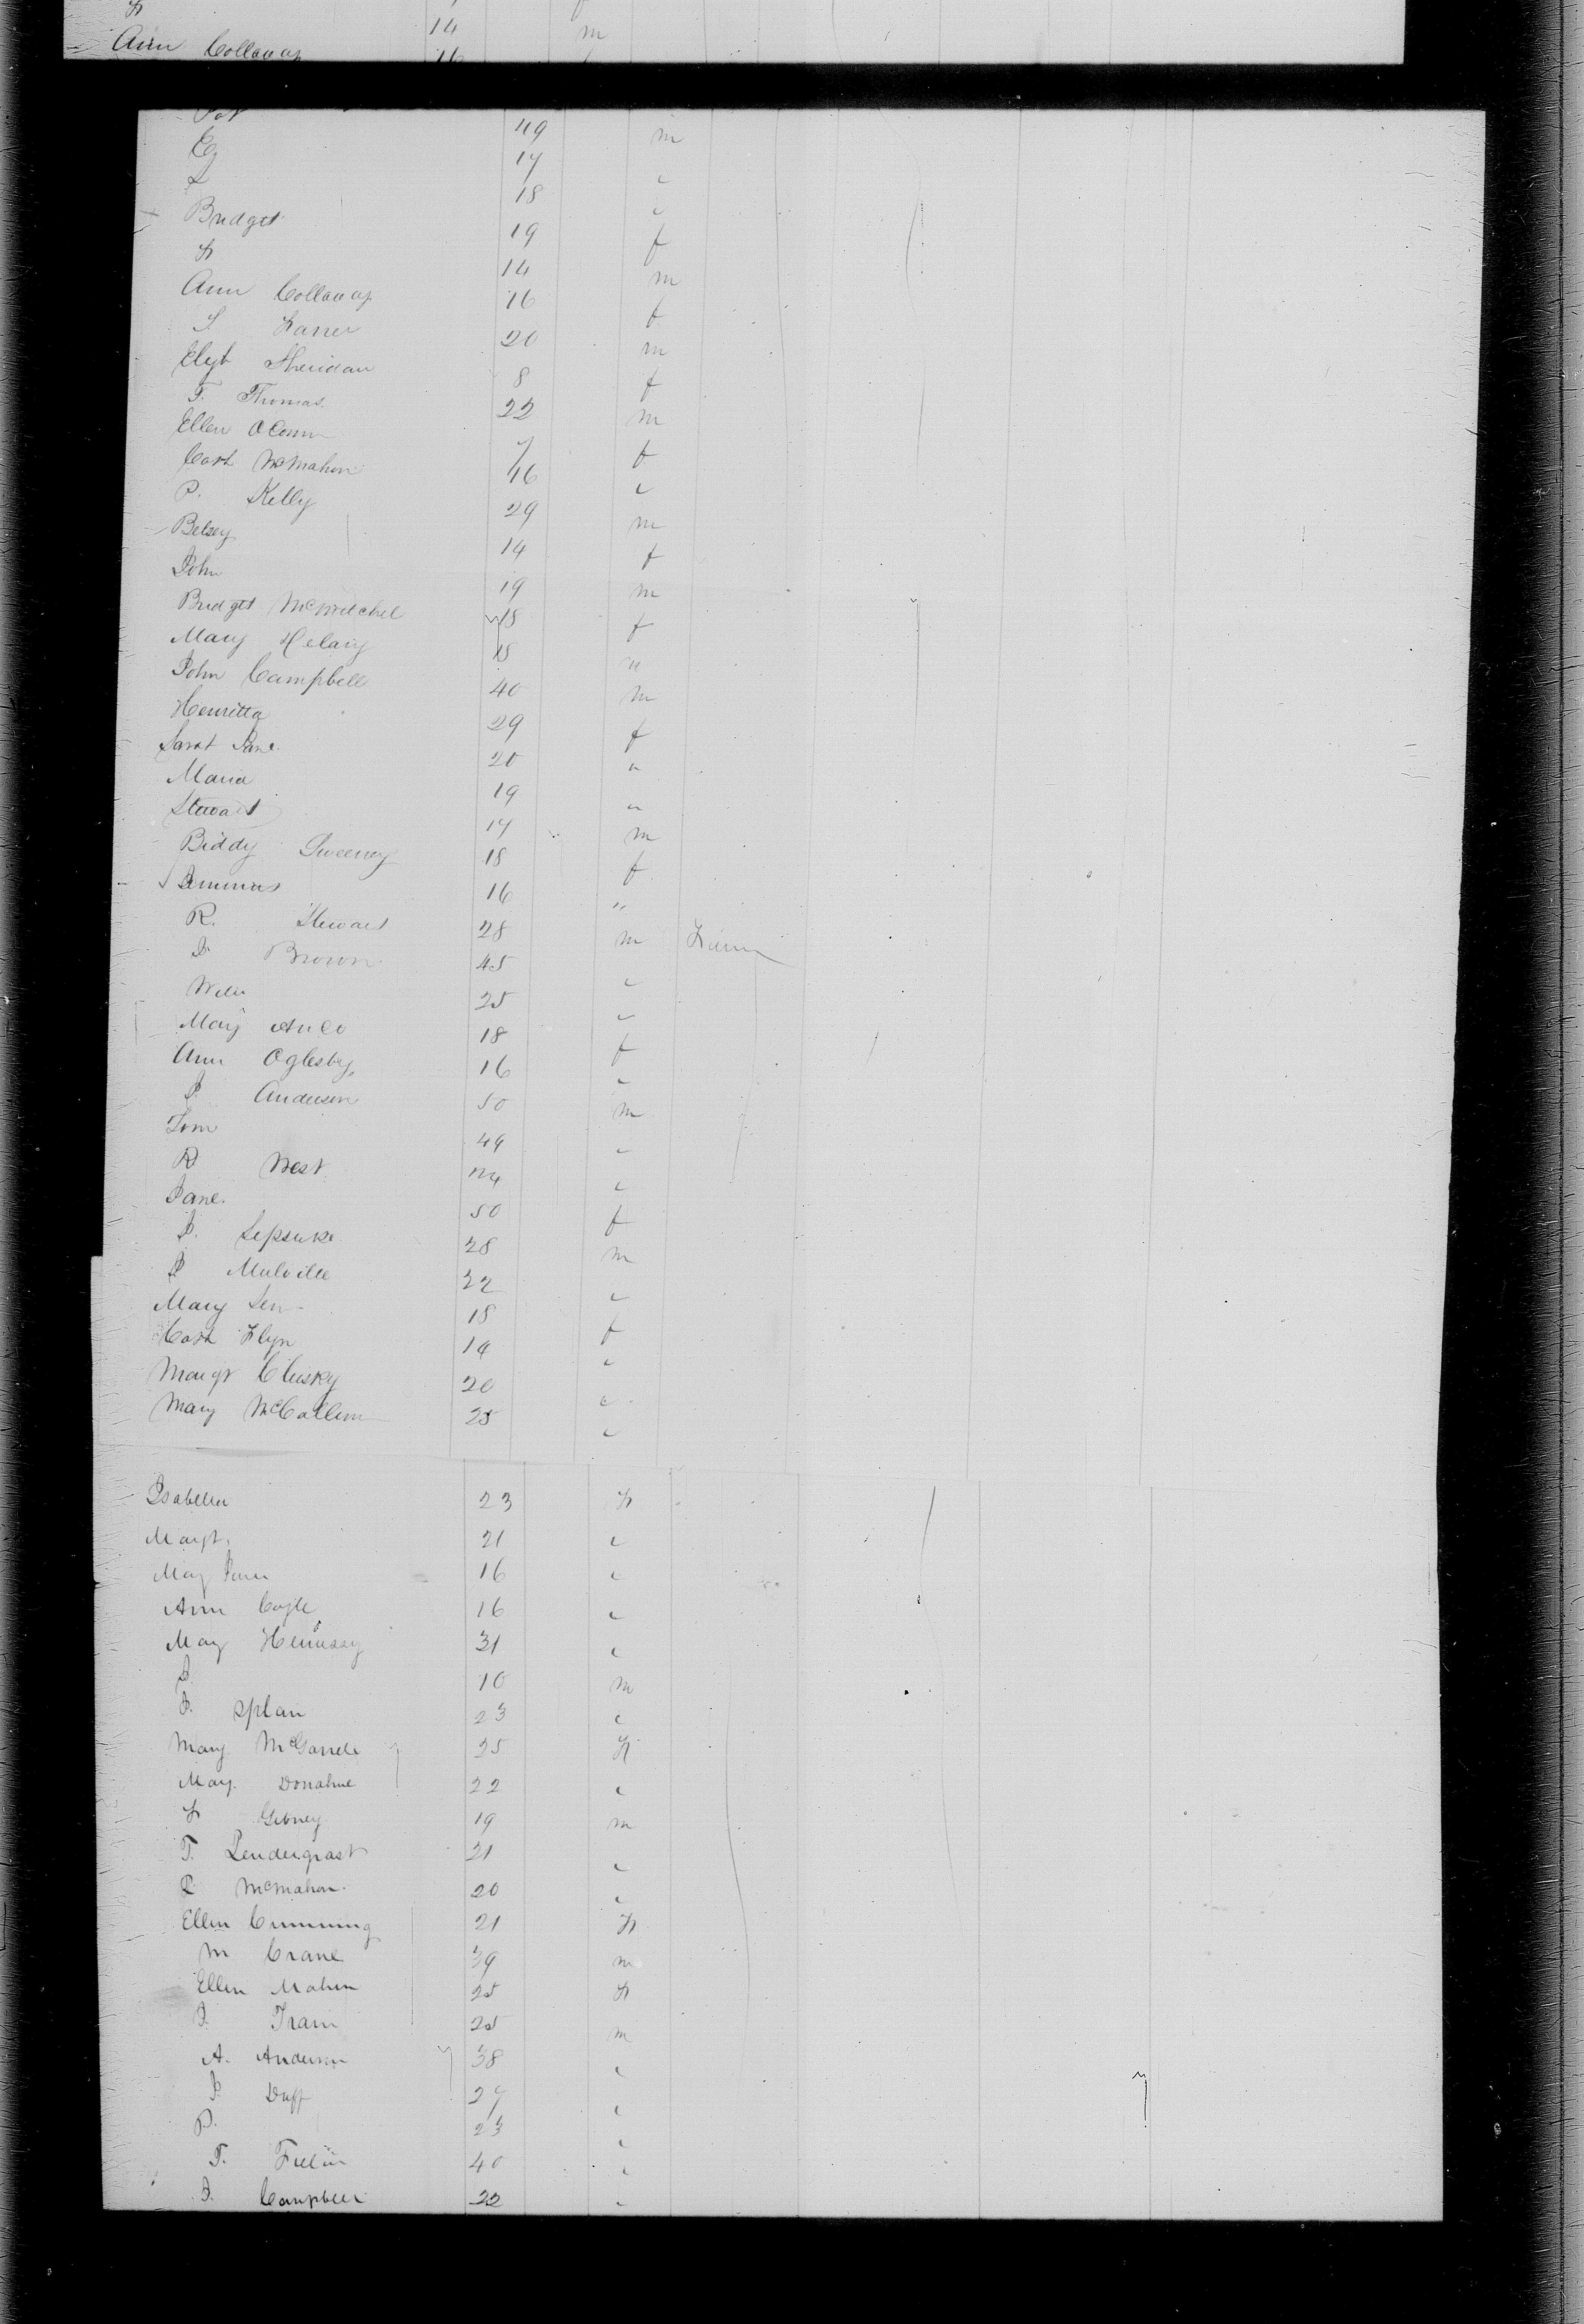 F 14 m
Ann Collaway 16
Pat 49 m
E 17 "
L 18 "
Bridget 19 f
F 14 m
Ann Collaway 16 f
S. Farrer 20 m
Elizt Sheridan 8 f
T. Thomas 22 m
Ellen OConn 7 f
Cath McMahon 16 "
P. Kelly 29 m
Betsey 14 f
John 19 m
Bridget McMitchel 18 f
Mary Helary 18 "
John Campbell 40 m
Henritta 29 f
Sarah Jane 20 "
Maria 19 "
Stewart 17 m
Biddy Sweeney 18 f
16 "
R. Stewart 28 m Farm
J. Brown 45 "
25 "
Mary 18 f
Ann Oglesby 16 "
J. Anderson 50 m
Tom 49 "
R. West 24 "
Jane 50 f
J. 28 m
J Mulville 22 "
Mary 18 f
Cath Flyn 14 "
Margt Clusky 20 "
Mary McCallum 25 "
Isabella 23 F
Margt. 21 "
Mary Jane 16 "
Ann Cagle 16 "
Mary Henussy 31 "
J. 10 m
J. Splan 23 "
Mary McGarrele 25 F
Mary Donahue 22 "
F Gibney 19 m
T. Pendergrast 21 "
P McMahon 20 "
Ellen Cumming 21 F
M Crane 39 m
Ellen Mahon 25 F
J. Tram 25 m
A. Anderson 38 "
J. Duff 27 "
P. 23 "
T. 40 "
J. Campbell 22 "